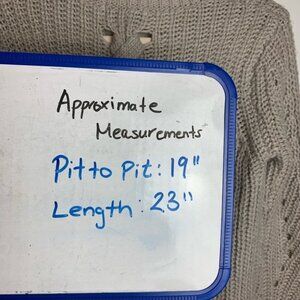 Approximate
Measurements
Pit to Pit: 19"
Length: 23"